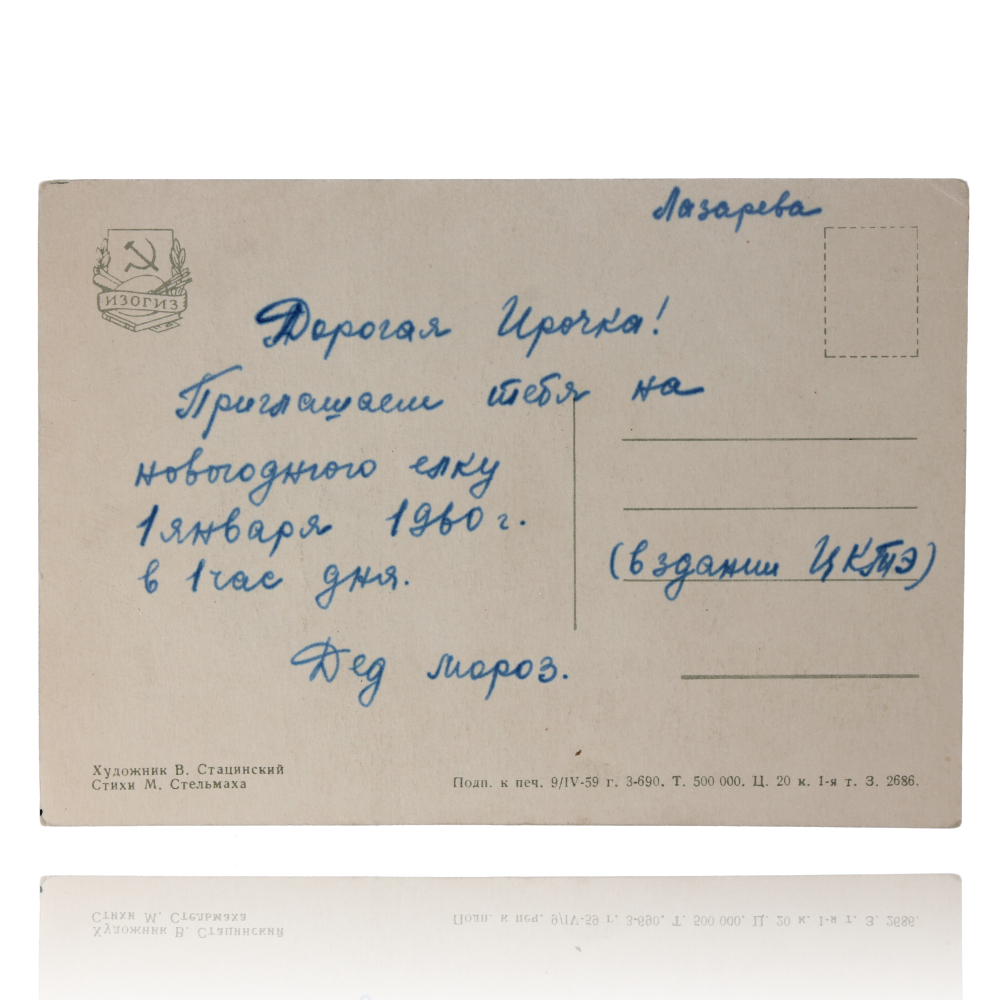 Лазарева
ИЗОГИЗ
Дорогая Ирочка!
Приглашаем тебя на
новогоднюю елку
1 января 1960 г.
в 1 час дня.
(в здании ЦКТЭ)
Дед мороз.
Художник В. Стацинский
Стихи М. Стельмаха
Подп. к печ. 9/IV-59 г. 3-690. Т. 500 000. Ц. 20 к. 1-я т. З. 2686.